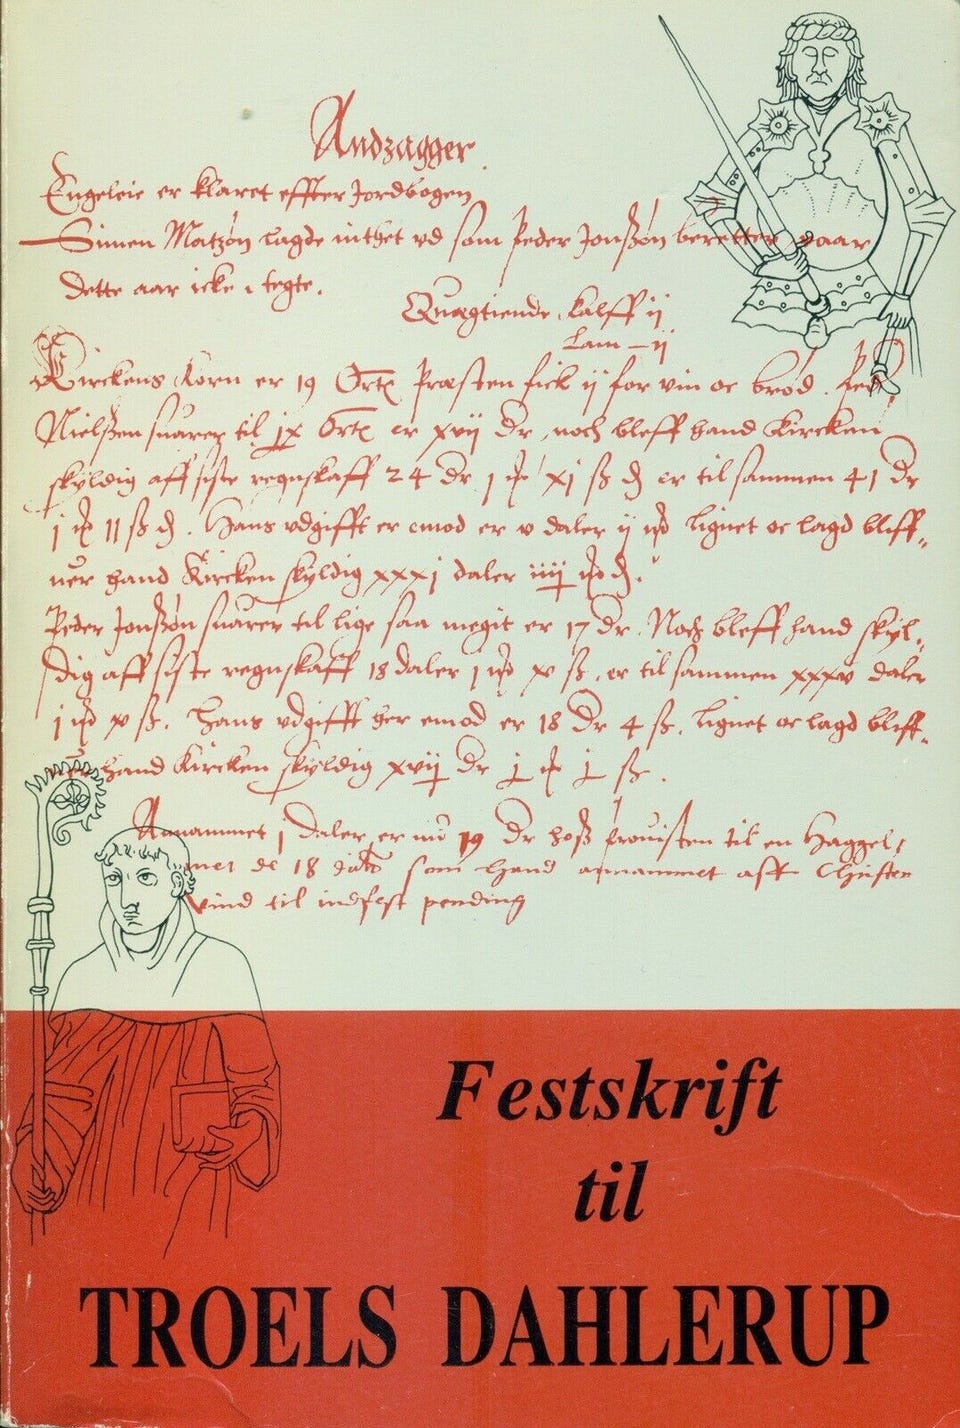 Andzagger
Engeleie er klaret effter Jordbogen
Simen Matzøn lagde inthet vd som Peder Jonßøn beretter vaar
dette aar icke i tegte.
Quægtiende, kalff ij
Lam – ij
Kirckens Korn er 19 Ørtt Præsten fick ij for vin oc brød. Peder
Nielßen suarer til jx Ørtt er xvij dr, noch bleff hand Kircken
skyldig aff siste regnskaff 24 dr 1 xj ß er til sammen 41 dr
j 11 ß. Hans vdgifft er emod er v daler ij lignet oc lagd bliff-
uer hand Kircken skyldig xxxj daler iiij
Peder Jonßøn suarer til lige saa megit er 17 dr. Noch bleff hand skyl-
dig aff siste regnskaff 18 daler 1 xv ß. er til sammen xxxv daler
j xv ß. Hans vdgifft her emod er 18 dr 4 ß. lignet oc lagd bliff-
uer hand Kircken skyldig xvij dr j j ß.
Annammet j daler er nu 19 dr hoß prouisten til en
de 18 som hand annammet aff
vind til indfest pending
Festskrift
til
TROELS DAHLERUP